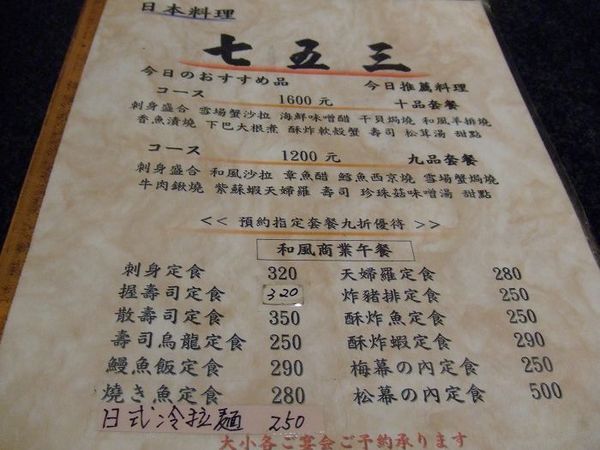 日本料理
七五三
今日のおすすめ品 今日推薦料理
コース 1600元 十品套餐
刺身盛合 雪場蟹沙拉 海鮮味噌醋 干貝焗燒 和風羊排燒
香魚漬燒 下巴大根煮 酥炸軟殼蟹 壽司 松茸湯 甜點
コース 1200元 九品套餐
刺身盛合 和風沙拉 章魚醋 鱈魚西京燒 雪場蟹焗燒
牛肉鍬燒 紫蘇蝦天婦羅 壽司 珍珠菇味噌湯 甜點
<< 預約指定套餐九折優待 >>
和風商業午餐
刺身定食 320 天婦羅定食 280
握壽司定食 320 炸豬排定食 250
散壽司定食 350 酥炸魚定食 250
壽司烏龍定食 250 酥炸蝦定食 290
鰻魚飯定食 290 梅幕の內定食 250
燒き魚定食 280 松幕の內定食 500
日式冷拉麵 250
大小各ご宴会ご予約承ります